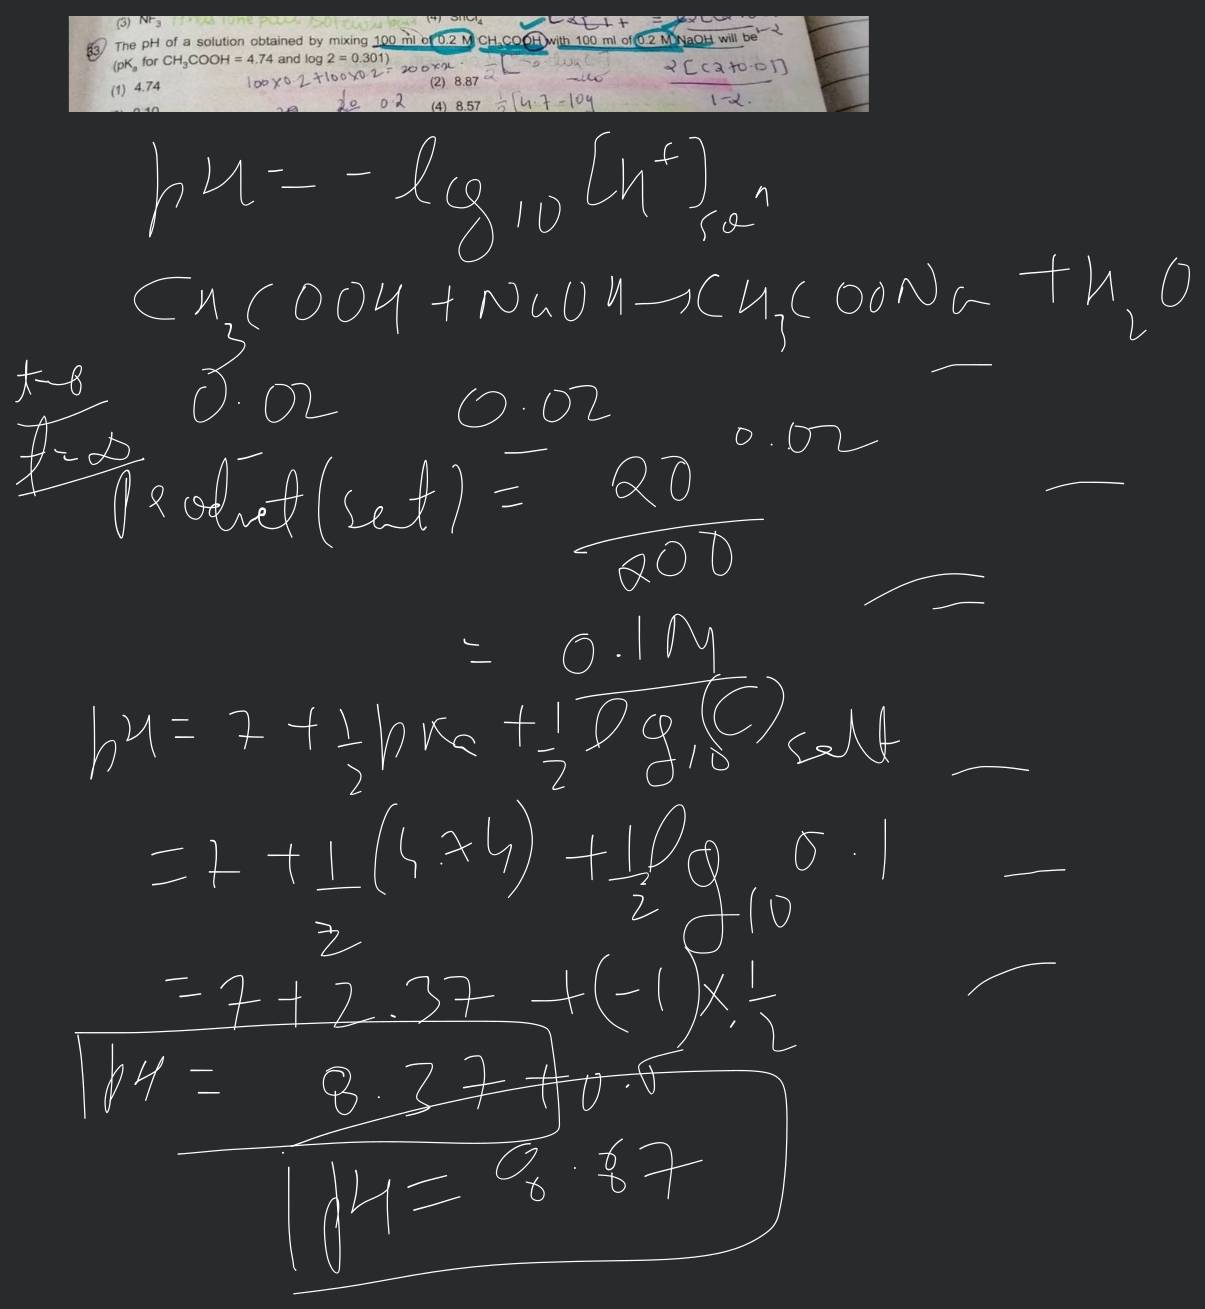 (3) NF₃ (4) SnCl₄
83. The pH of a solution obtained by mixing 100 ml of 0.2 M CH₃COOH with 100 ml of 0.2 M NaOH will be
(pKₐ for CH₃COOH = 4.74 and log 2 = 0.301)
100×0.2+100×0.2=200×x
(1) 4.74 (2) 8.87
(4) 8.57
pH = -log₁₀[H⁺]solⁿ
CH₃COOH + NaOH → CH₃COONa + H₂O
t=0 0.02 0.02 —
t=∞ — — 0.02
Product(salt) = 20/200
= 0.1M
pH = 7 + 1/2 pKa + 1/2 log₁₀(C) salt
= 7 + 1/2 (4.74) + 1/2 log₁₀ 0.1
= 7 + 2.37 + (-1) × 1/2
pH = 8.37 + 0.5
pH = 8.87